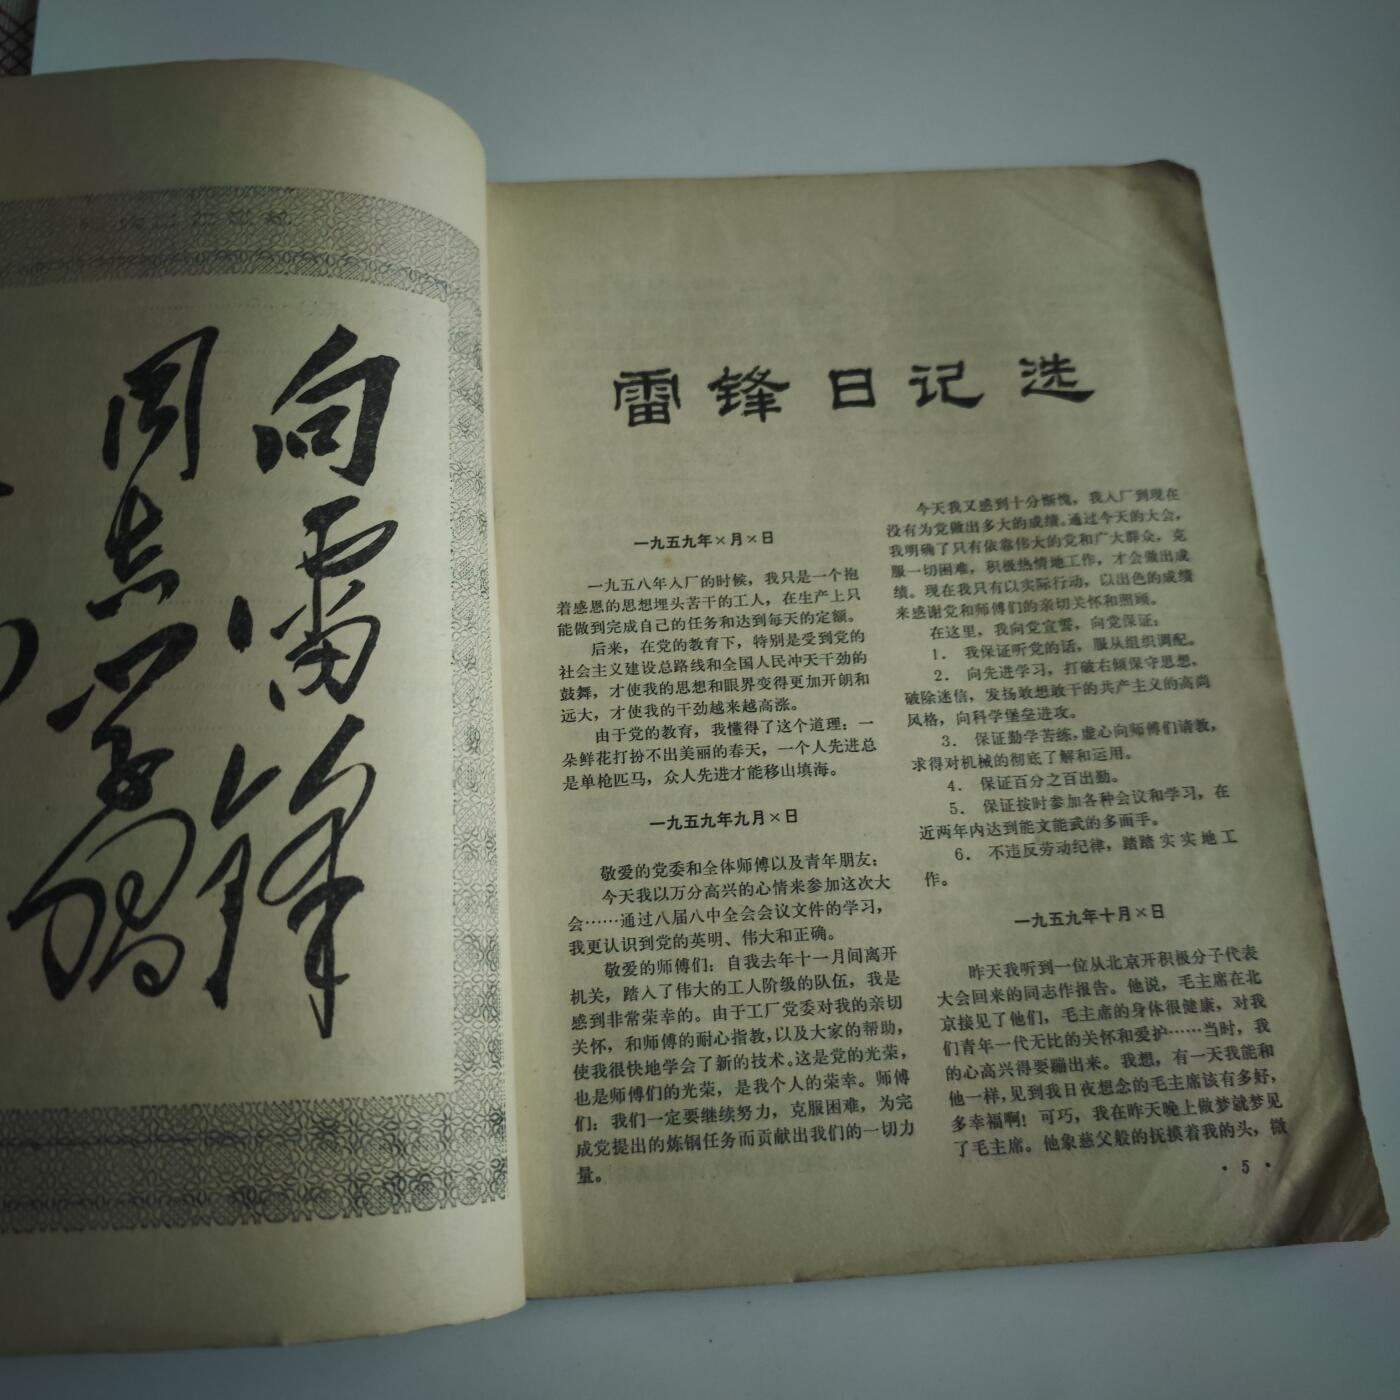 向雷锋
同志学习
雷锋日记选
一九五九年×月×日
一九五八年入厂的时候，我只是一个抱
着感恩的思想埋头苦干的工人，在生产上只
能做到完成自己的任务和达到每天的定额。
后来，在党的教育下，特别是受到党的
社会主义建设总路线和全国人民冲天干劲的
鼓舞，才使我的思想和眼界变得更加开朗和
远大，才使我的干劲越来越高涨。
由于党的教育，我懂得了这个道理：一
朵鲜花打扮不出美丽的春天，一个人先进总
是单枪匹马，众人先进才能移山填海。
一九五九年九月×日
敬爱的党委和全体师傅以及青年朋友：
今天我以万分高兴的心情来参加这次大
会……通过八届八中全会会议文件的学习，
我更认识到党的英明、伟大和正确。
敬爱的师傅们：自我去年十一月间离开
机关，踏入了伟大的工人阶级的队伍，我是
感到非常荣幸的。由于工厂党委对我的亲切
关怀，和师傅的耐心指教，以及大家的帮助，
使我很快地学会了新的技术。这是党的光荣，
也是师傅们的光荣，是我个人的荣幸。师傅
们：我们一定要继续努力，克服困难，为完
成党提出的炼钢任务而贡献出我们的一切力
量。
今天我又感到十分惭愧，我入厂到现在
没有为党做出多大的成绩。通过今天的大会，
我明确了只有依靠伟大的党和广大群众，克
服一切困难，积极热情地工作，才会做出成
绩。现在我只有以实际行动，以出色的成绩
来感谢党和师傅们的亲切关怀和照顾。
在这里，我向党宣誓，向党保证：
1．我保证听党的话，服从组织调配。
2．向先进学习，打破右倾保守思想，
破除迷信，发扬敢想敢干的共产主义的高尚
风格，向科学堡垒进攻。
3．保证勤学苦练，虚心向师傅们请教，
求得对机械的彻底了解和运用。
4．保证百分之百出勤。
5．保证按时参加各种会议和学习，在
近两年内达到能文能武的多面手。
6．不违反劳动纪律，踏踏实实地工
作。
一九五九年十月×日
昨天我听到一位从北京开积极分子代表
大会回来的同志作报告。他说，毛主席在北
京接见了他们，毛主席的身体很健康，对我
们青年一代无比的关怀和爱护……当时，我
的心高兴得要蹦出来。我想，有一天我能和
他一样，见到我日夜想念的毛主席该有多好，
多幸福啊！可巧，我在昨天晚上做梦就梦见
了毛主席。他象慈父般的抚摸着我的头，微
·5·